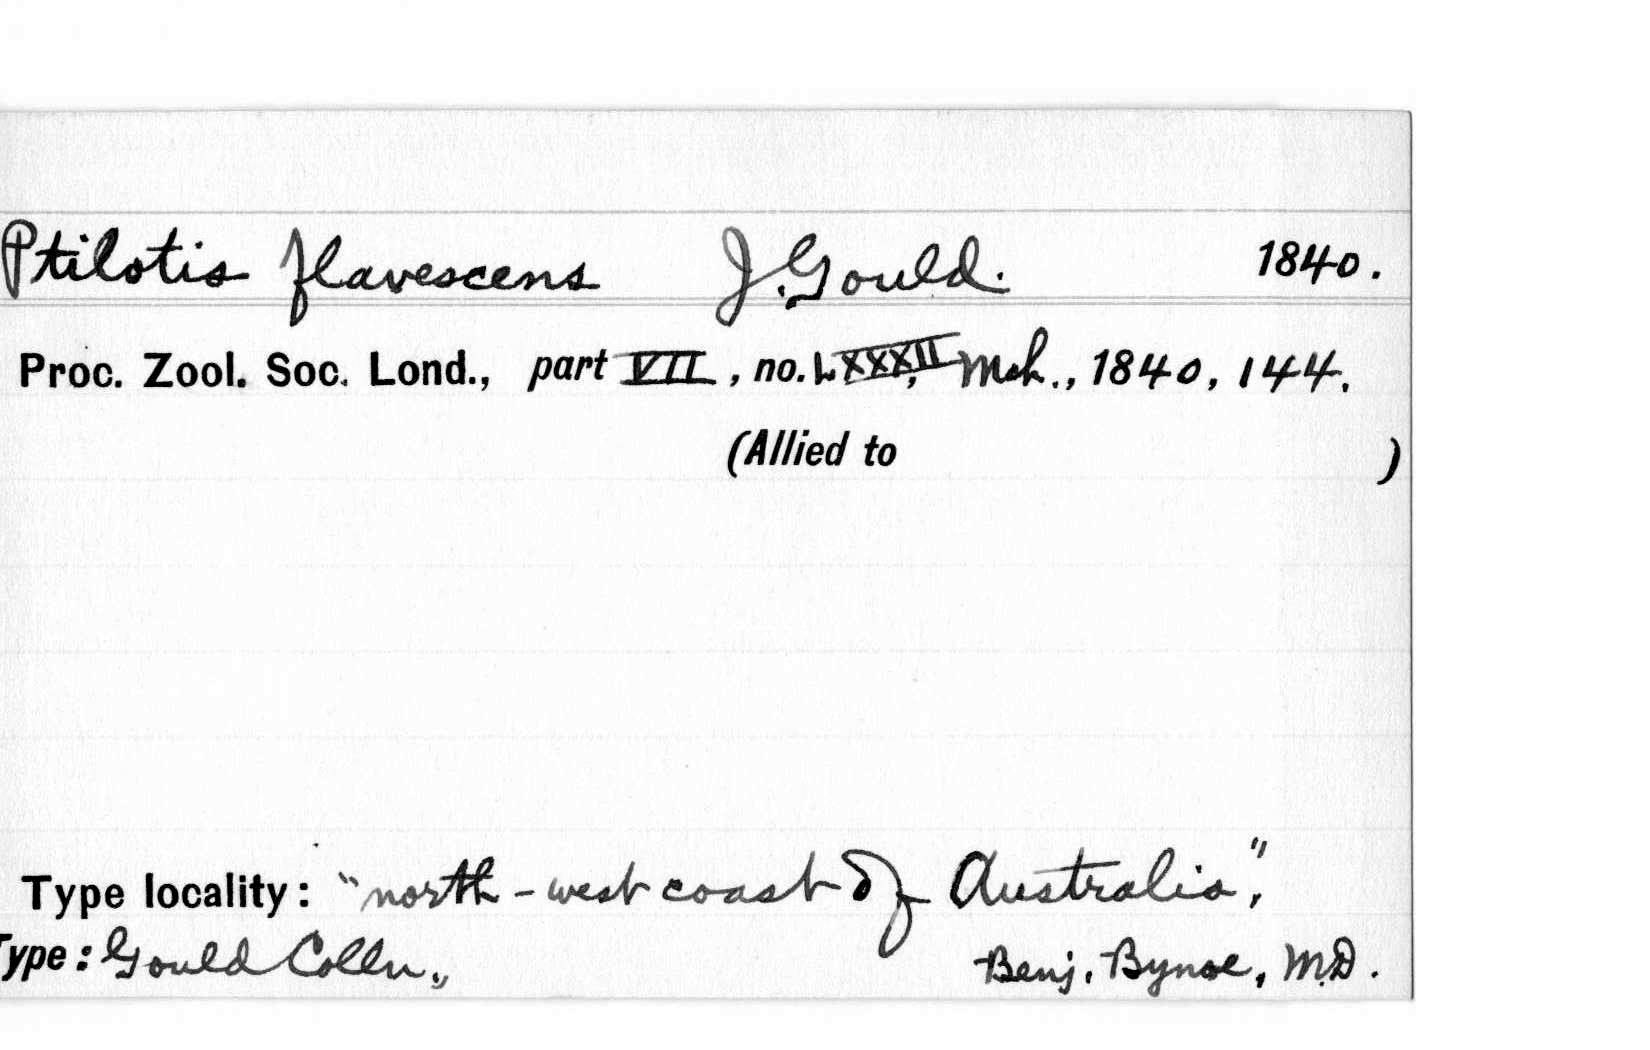 Ptilotis flavescens J. Gould. 1840.
Proc. Zool. Soc. Lond., part VII, no. LXXXII, Mch., 1840, 144.
(Allied to )
Type locality: "north-west coast of Australia",
Type: Gould Colln., Benj. Bynoe, M.D.